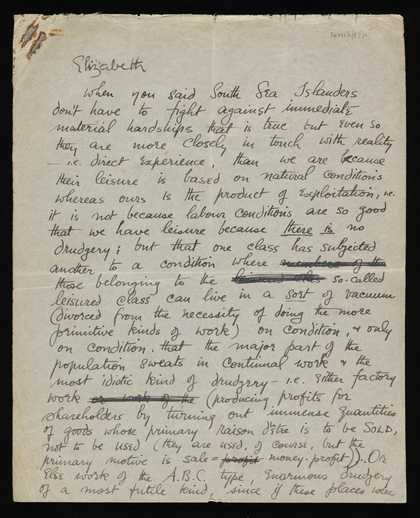 Elizabeth
When you said South Sea Islanders
don't have to fight against immediate
material hardships that is true but even so
they are more closely in touch with reality
– i.e. direct experience, than we are because
their leisure is based on natural conditions
whereas ours is the product of exploitation, i.e.
it is not because labour conditions are so good
that we have leisure because there is no
drudgery; but that one class has subjected
another to a condition where members of the
those belonging to the so-called
leisured class can live in a sort of vacuum
(divorced from the necessity of doing the more
primitive kinds of work) on condition, & only
on condition that the major part of the
population sweats in continual work & the
most idiotic kind of drudgery – i.e. either factory
work or work of the (producing profits for
shareholders by turning out immense quantities
of goods whose primary raison d'etre is to be SOLD,
not to be used (they are used, of course, but the
primary motive is sale = profit money-profit)). Or
else work of the A.B.C. type, enormous drudgery
of a most futile kind, since if these places were